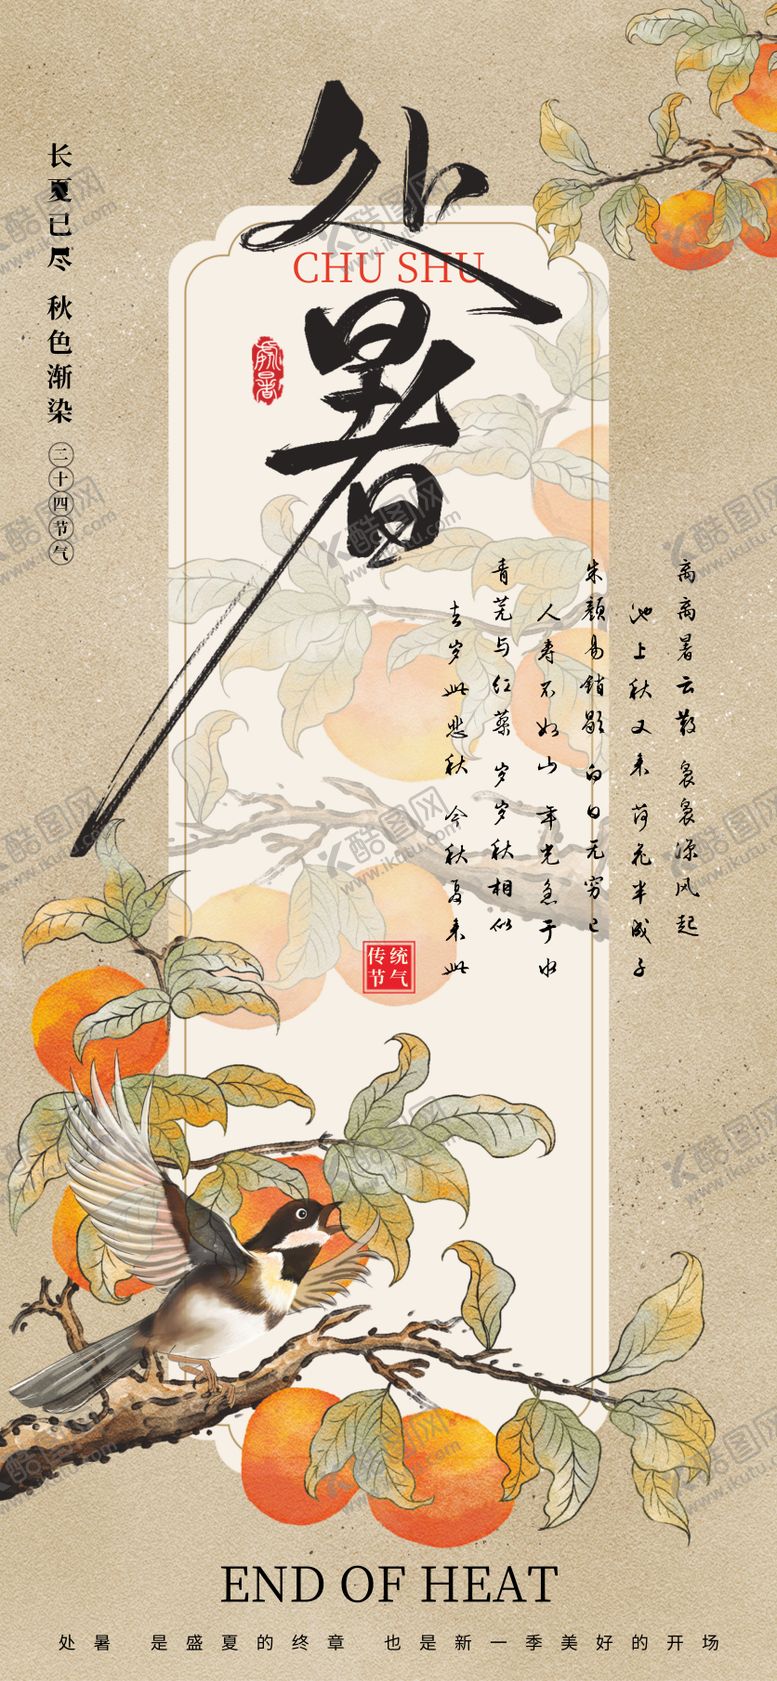 处暑
CHU SHU
處暑
长夏已尽 秋色渐染
二十四节气
离离暑云散 袅袅凉风起
池上秋又来 荷花半成子
朱颜易销歇 白日无穷已
人寿不如山 年光急于水
青芜与红蓼 岁岁秋相似
去岁此悲秋 今秋复来此
传统
节气
END OF HEAT
处暑 是盛夏的终章 也是新一季美好的开场
酷图网
www.ikutu.com